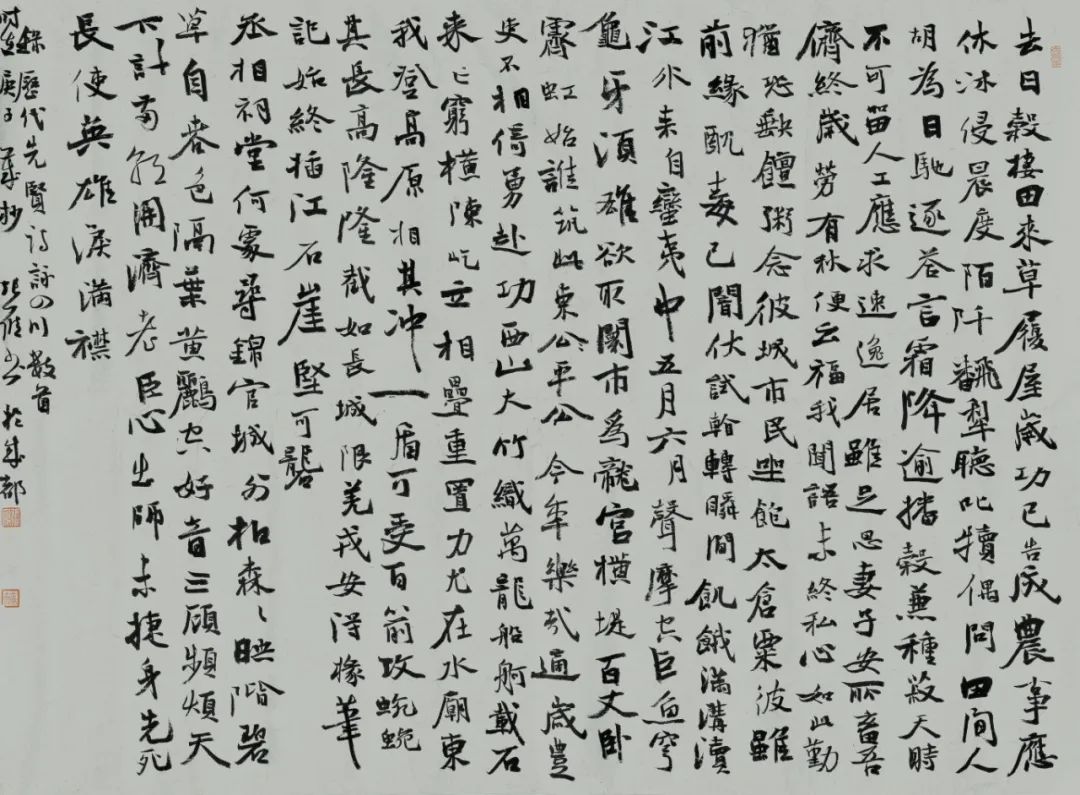 去日穀棲田來草履屋歲功已告成農事應
休沐侵晨度陌阡飜犁聽叱犢偶問田間人
胡為日馳逐答言霜降逾播穀兼種菽天時
不可留人工應求速逸居雖足思妻子安所畜吾
儕終歲勞有秋便云福我聞語未終私心如此勤
猶恐缺饘粥念彼城市民坐飽太倉粟彼雖
前緣酖毒已闇伏試斡轉瞬間飢餓滿溝瀆
江水來自蠻夷中五月六月聲摩空巨魚穹
龜牙須雄欲取闤市為龍宮橫堤百丈臥
霽虹始誰筑此東公平公今年樂哉適歲豐
吏不相倚勇赴功西山大竹織萬龍船舸載石
來亡窮橫陳屹立相疊重置力尤在水廟東
我登高原相其沖一盾可受百箭攻蜿蜿
其長高隆隆截如長城限羌戎安得椽筆
記始終插江石崖堅可礱
丞相祠堂何處尋錦官城外柏森〻映階碧
草自春色隔葉黃鸝空好音三顧頻煩天
下計兩朝開濟老臣心出師未捷身先死
長使英雄淚滿襟
錄歷代先賢詩詠四川數首
時在庚子 於成都